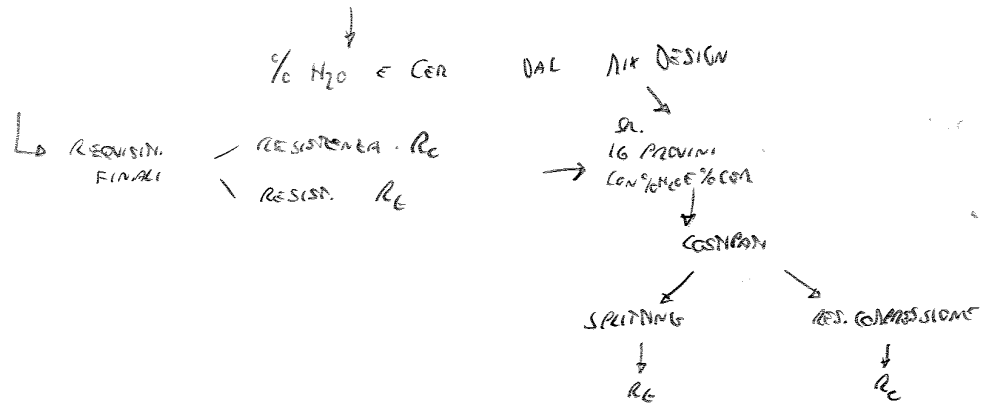 % H2O E CEM DAL MIX DESIGN
REQUISITI FINALI
RESISTENZA Rc
RESIST. Rt
SU
16 PROVINI
CON % H2O E % CEM
COSTIPAM
SPLITTING
RES. COMPRESSIONE
Rt
Rc